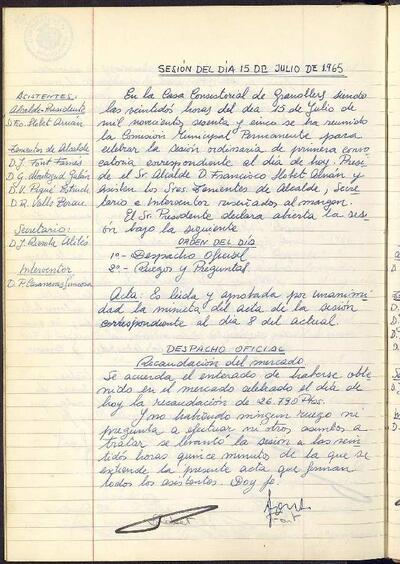 SESIÓN DEL DÍA 15 DE JULIO DE 1965
ASISTENTES:
Alcalde-Presidente
D. Fco. Llobet Arnán
Tenientes de Alcalde
D. J. Font Farrés
D. G.
D. V. Piqué
D. R. Valls
Secretario:
D. J.
Interventor
D. P. Casameras
En la Casa Consistorial de Granollers siendo
las veintidós horas del día 15 de Julio de
mil novecientos sesenta y cinco se ha reunido
la Comisión Municipal Permanente para
celebrar la sesión ordinaria de primera convo
catoria correspondiente al día de hoy. Presi
de el Sr. Alcalde D. Francisco Llobet Arnán y
asisten los Sres. Tenientes de Alcalde, Secre
tario e Interventor reseñados al margen.
El Sr. Presidente declara abierta la se
sión bajo la siguiente
ORDEN DEL DÍA
1º- Despacho Oficial
2º- Ruegos y Preguntas.
Acta: Es leída y aprobada por unanimi
dad la minuta del acta de la sesión
correspondiente al día 8 del actual.
DESPACHO OFICIAL
Recaudación del mercado
Se acuerda el enterado de haberse obte
nido en el mercado celebrado el día de
hoy la recaudación de 26.790 Ptas.
Y no habiendo ningún ruego ni
pregunta a efectuar ni otros asuntos a
tratar se levantó la sesión a las vein
tidós horas quince minutos de la que se
extiende la presente acta que firman
todos los asistentes. Doy fe.
Llobet
Font